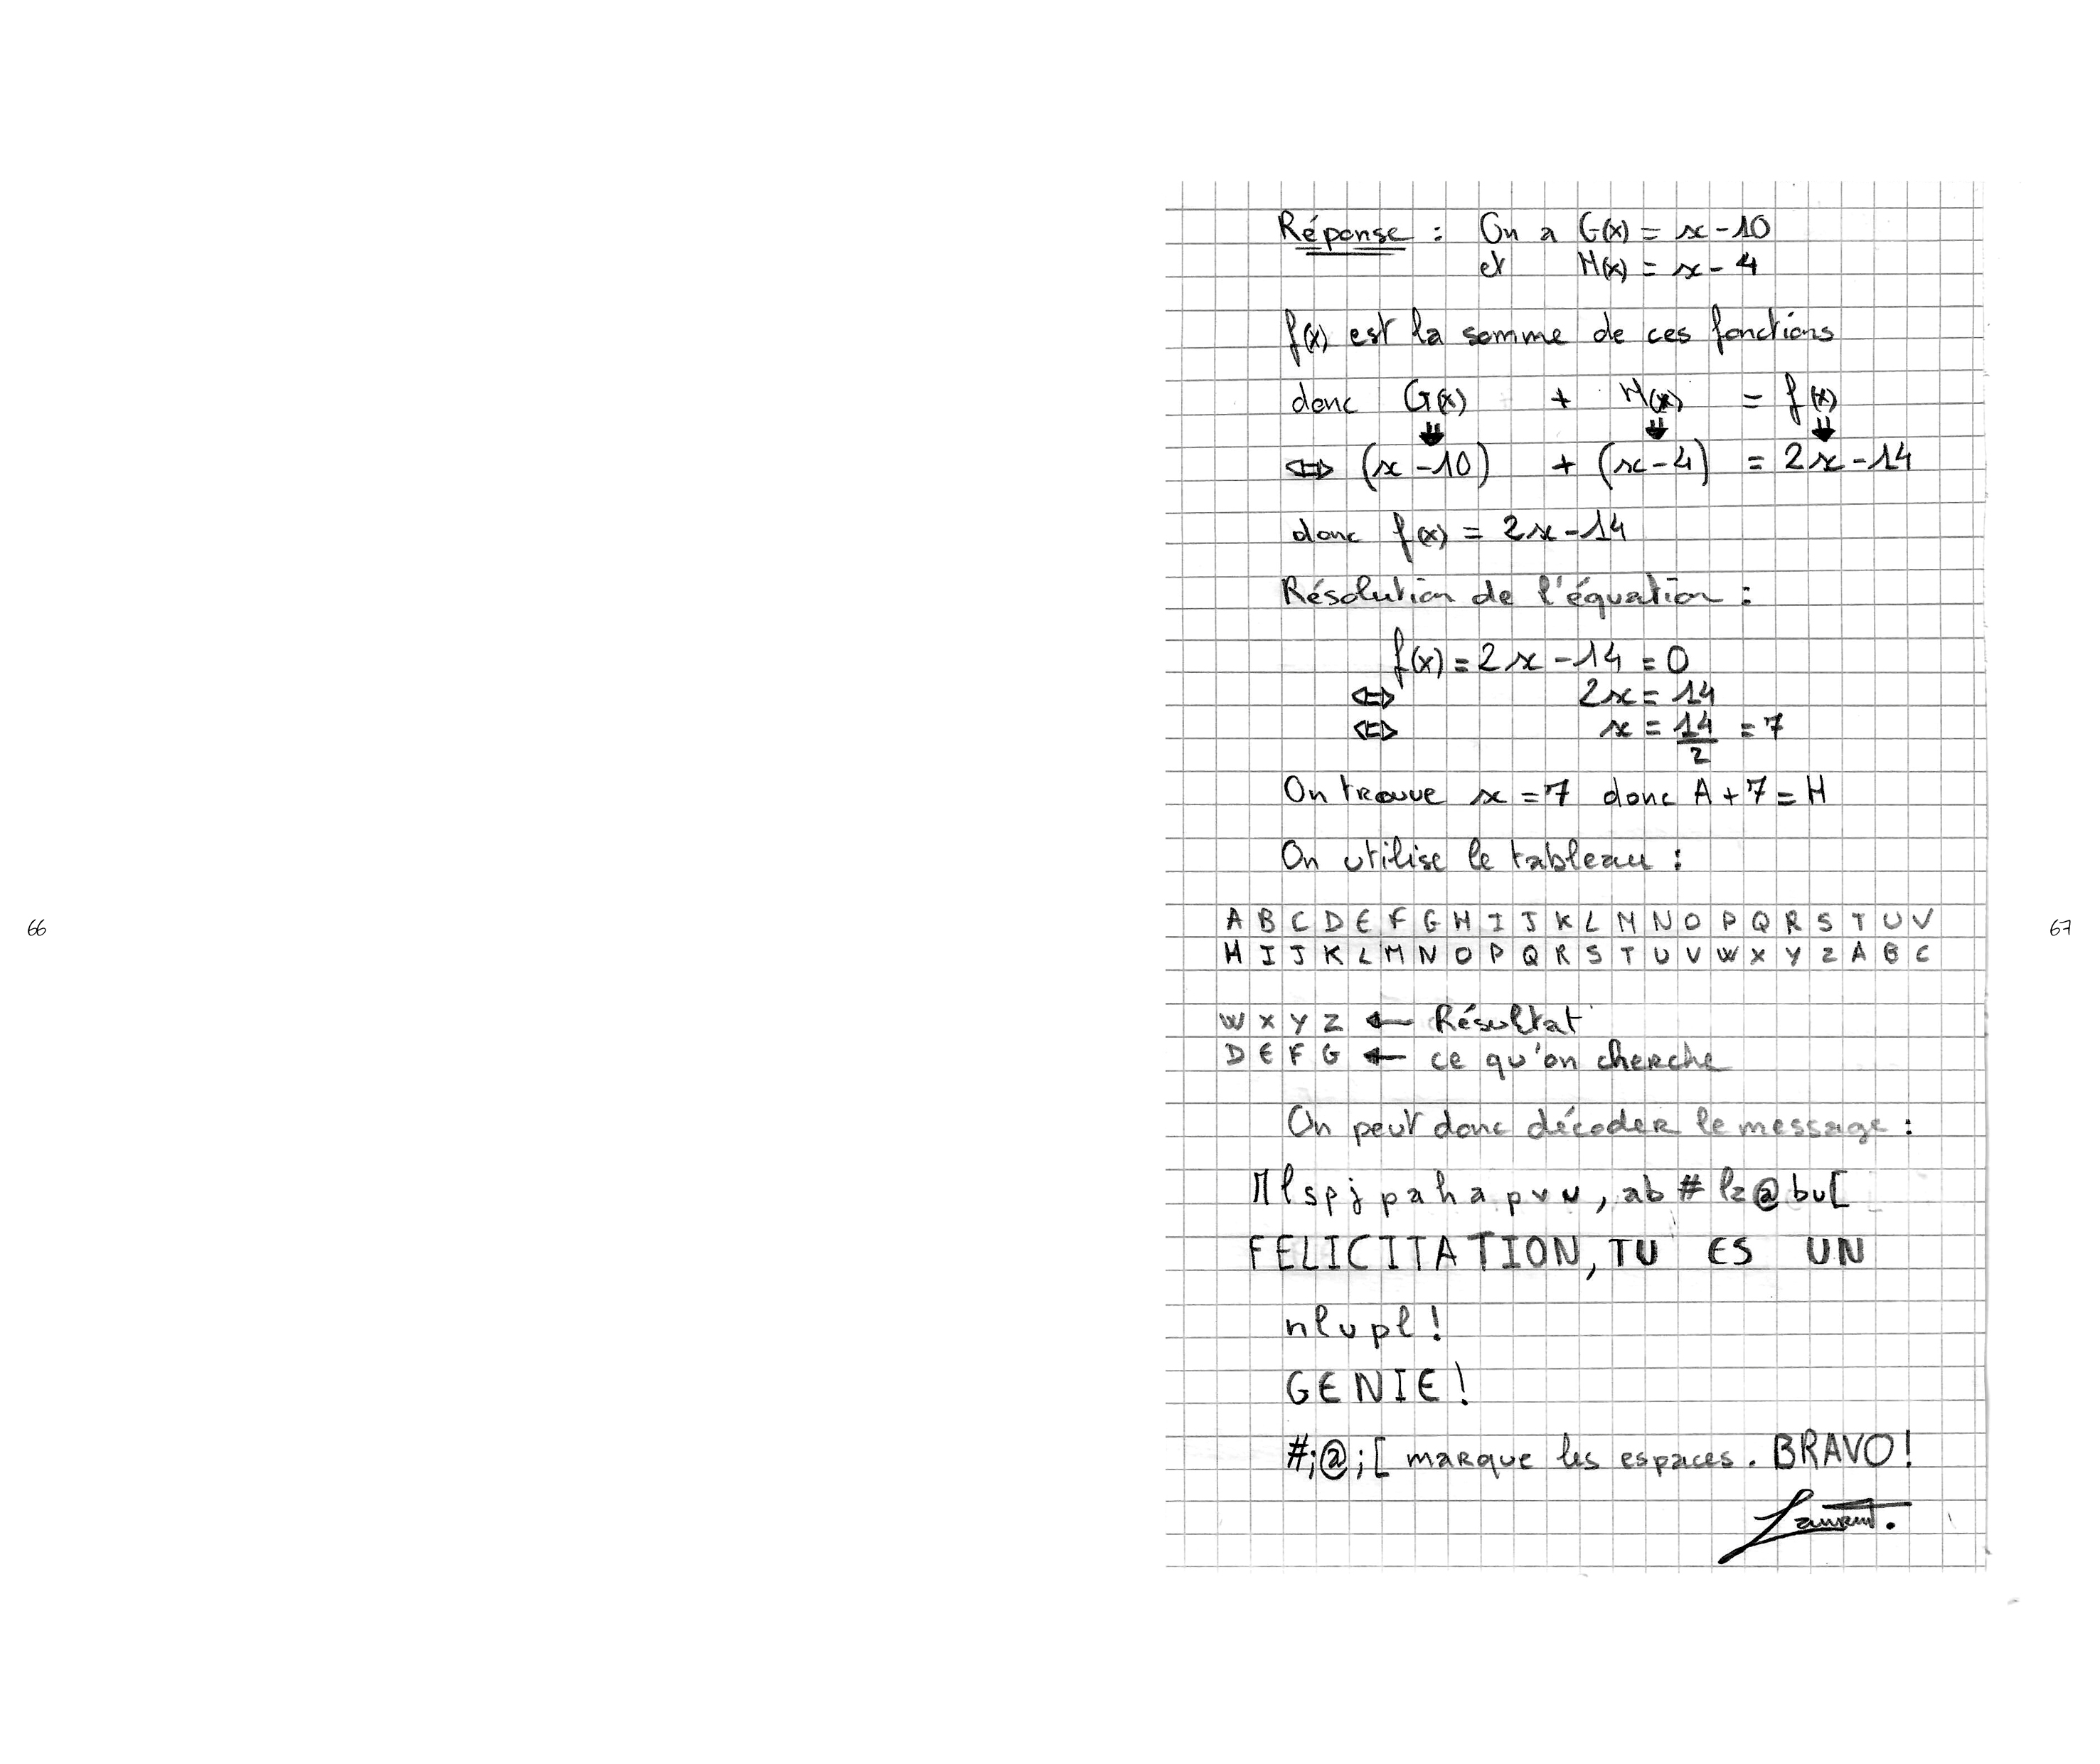 66
Réponse : On a G(x) = x - 10
et H(x) = x - 4
f(x) est la somme de ces fonctions
donc G(x) + H(x) = f(x)
⇔ (x - 10) + (x - 4) = 2x - 14
donc f(x) = 2x - 14
Résolution de l'équation :
f(x) = 2x - 14 = 0
⇔ 2x = 14
⇔ x = 14/2 = 7
On trouve x = 7 donc A + 7 = H
On utilise le tableau :
A B C D E F G H I J K L M N O P Q R S T U V
H I J K L M N O P Q R S T U V W X Y Z A B C
W X Y Z ← Résultat
D E F G ← ce qu'on cherche
On peut donc décoder le message :
Mlspjpahapvu, ab # lz @ bu [
FELICITATION, TU ES UN
nlupl !
GENIE !
#;@;[ marque les espaces. BRAVO !
Laurent.
67